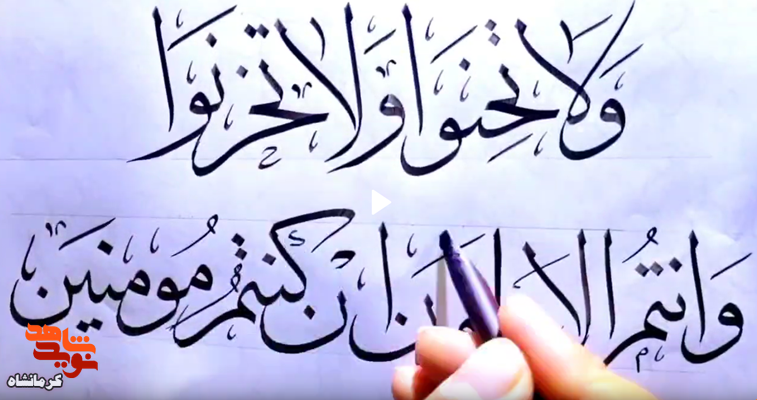 وَلَا تَحِنُوا وَلَا تَحْزَنُوا
وَأَنْتُمُ الْأَعْلَوْنَ إِنْ كُنْتُمْ مُومِنِينَ
نوید شاهد
کرمانشاه